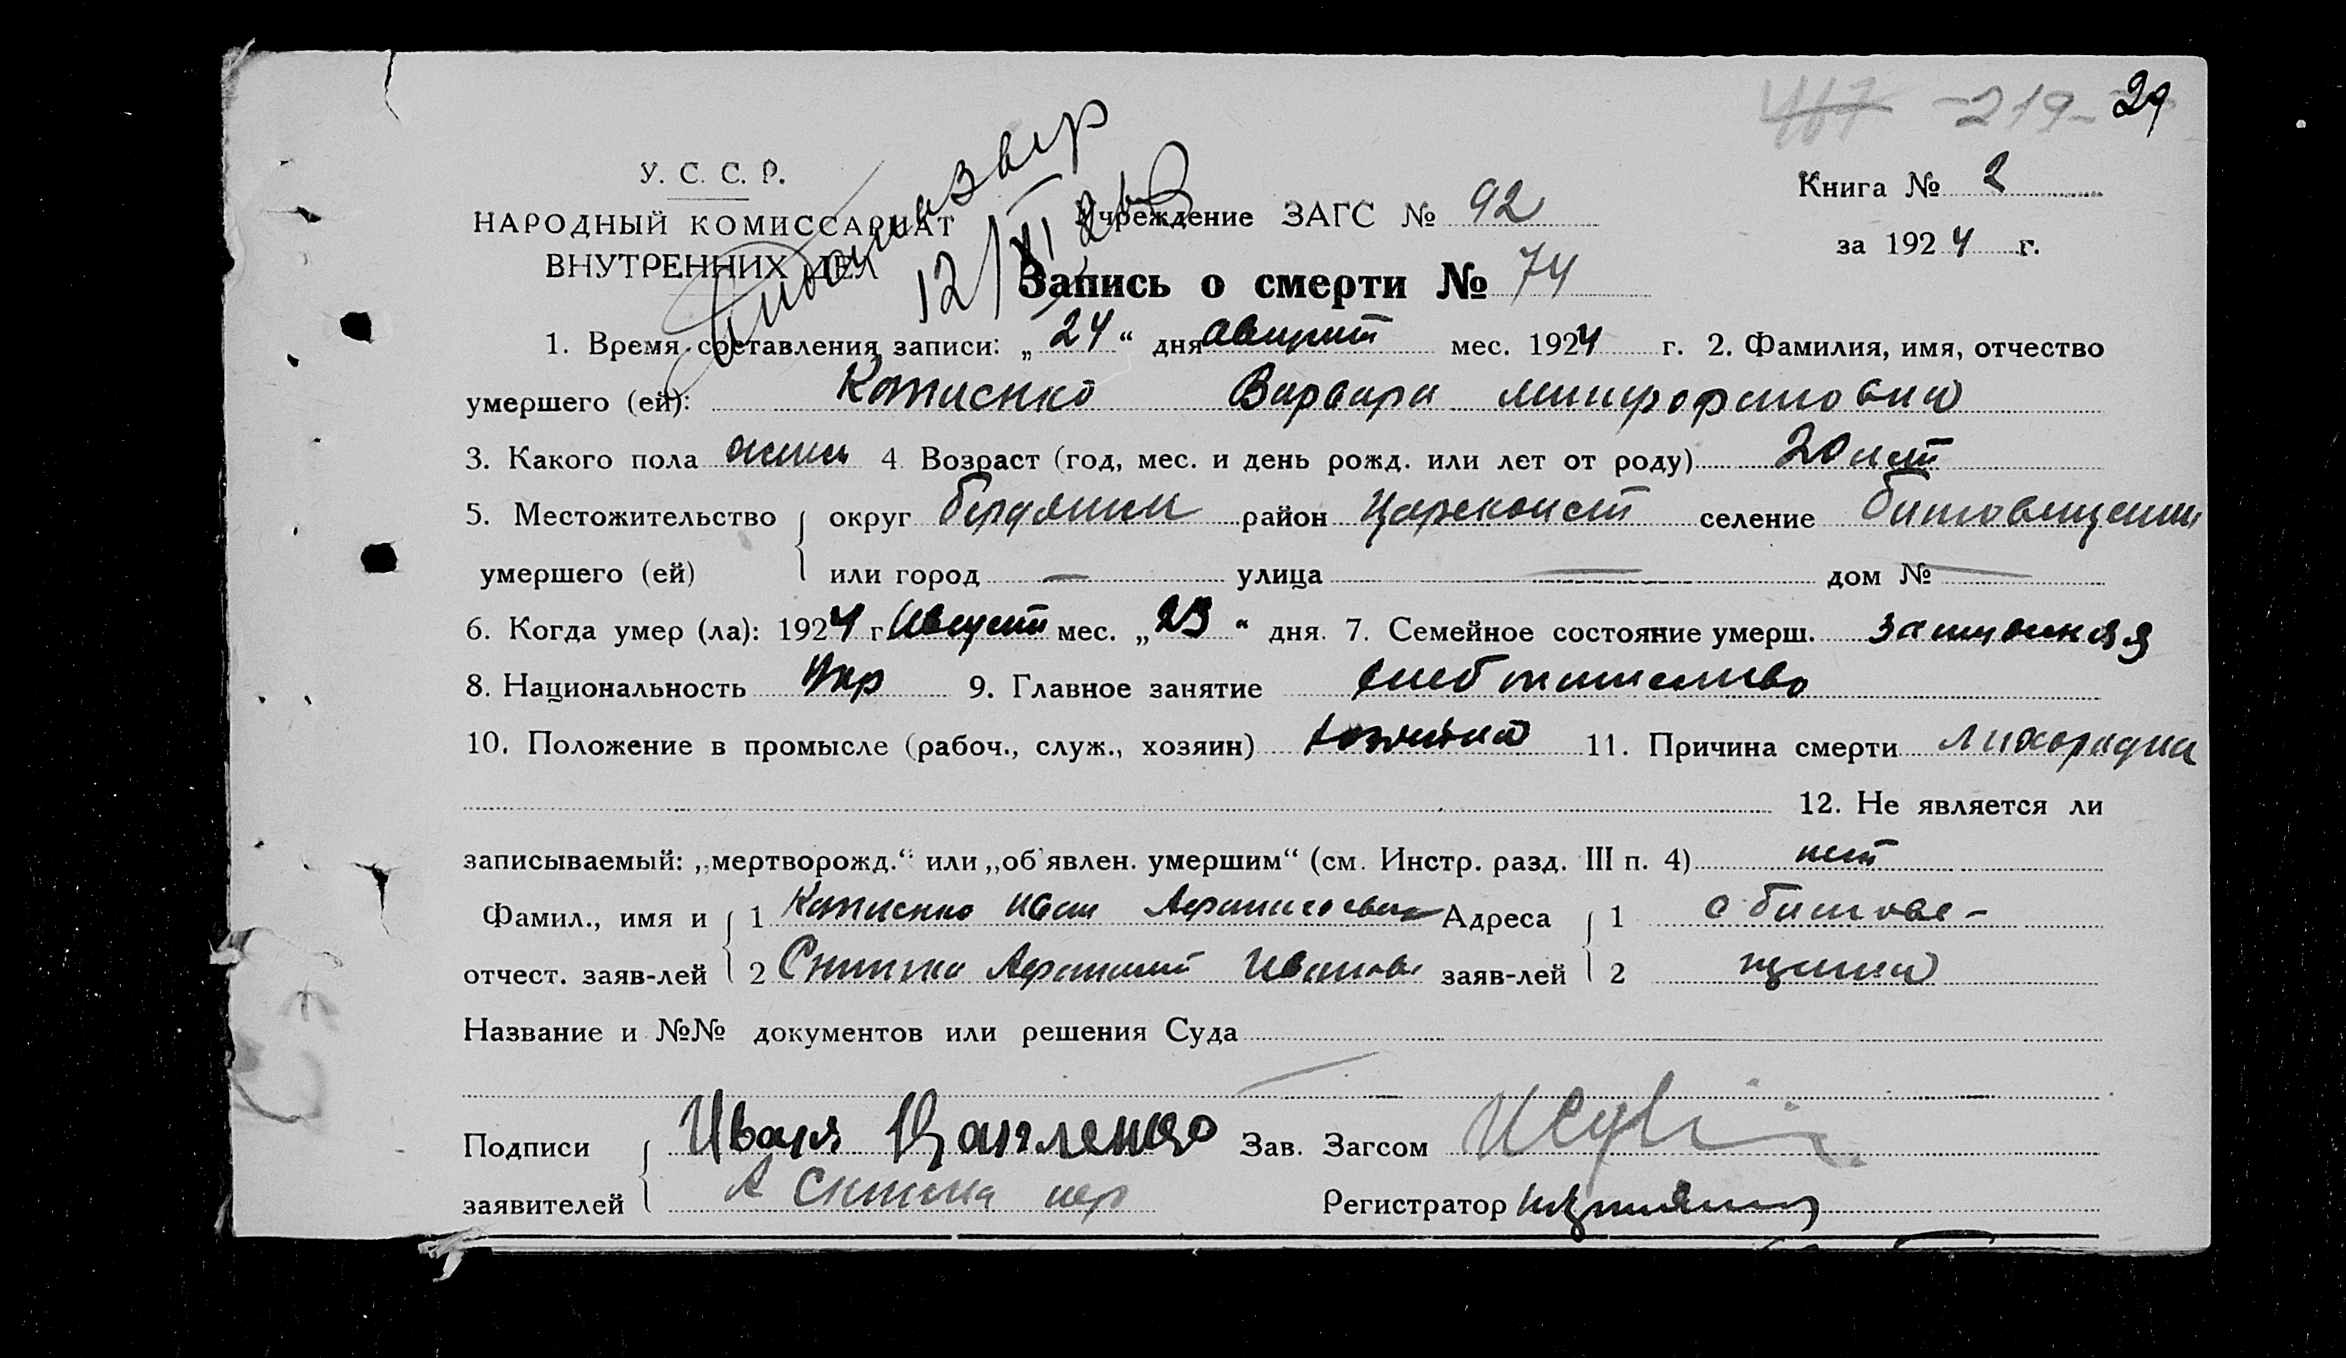 417 -219- 29
У. С. С. Р.
НАРОДНЫЙ КОМИССАРИАТ
ВНУТРЕННИХ ДЕЛ
12/XI
Учреждение ЗАГС № 92
Книга № 2
за 1924 г.
Запись о смерти № 74
1. Время составления записи: „24“ дня август мес. 1924 г. 2. Фамилия, имя, отчество
умершего (ей): Варвара митрофановна
3. Какого пола женск 4. Возраст (год, мес. и день рожд. или лет от роду) 20 лет
5. Местожительство округ Бердянск район Цареконст селение
умершего (ей) или город — улица — дом № —
6. Когда умер (ла): 1924 г Август мес. „23“ дня. 7. Семейное состояние умерш. замужняя
8. Национальность Укр 9. Главное занятие хлебопашество
10. Положение в промысле (рабоч., служ., хозяин) 11. Причина смерти лихорадка
12. Не является ли
записываемый: „мертворожд.“ или „об'явлен. умершим“ (см. Инстр. разд. III п. 4) нет
Фамил., имя и 1 Иван Афанасьевич Адреса 1 с
отчест. заяв-лей 2 Афанасий Иванов заяв-лей 2
Название и №№ документов или решения Суда
Подписи Иван Зав. Загсом
заявителей А Регистратор